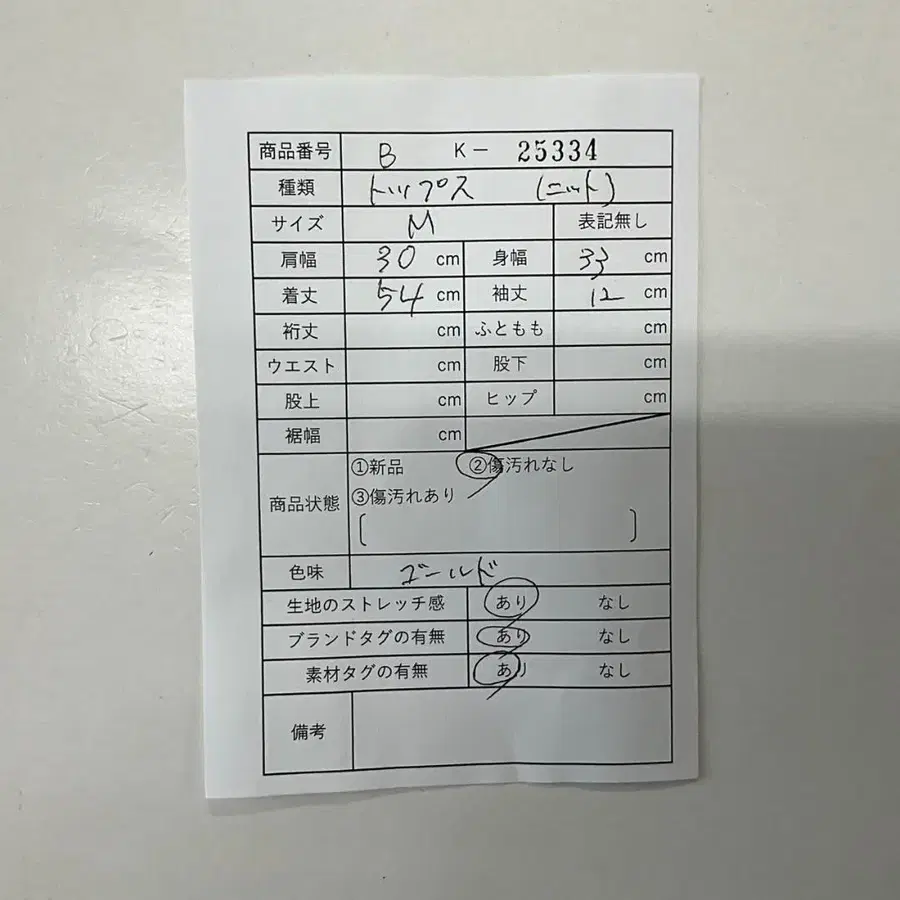 商品番号 B K- 25334
種類 トップス (ニット)
サイズ M 表記無し
肩幅 30 cm 身幅 33 cm
着丈 54 cm 袖丈 12 cm
裄丈 cm ふともも cm
ウエスト cm 股下 cm
股上 cm ヒップ cm
裾幅 cm
①新品 ②傷汚れなし
商品状態 ③傷汚れあり
[ ]
色味 ゴールド
生地のストレッチ感 あり なし
ブランドタグの有無 あり なし
素材タグの有無 あり なし
備考